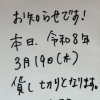 お知らせです!
本日、令和8年
3月19日(木)
貸し切りとなります。